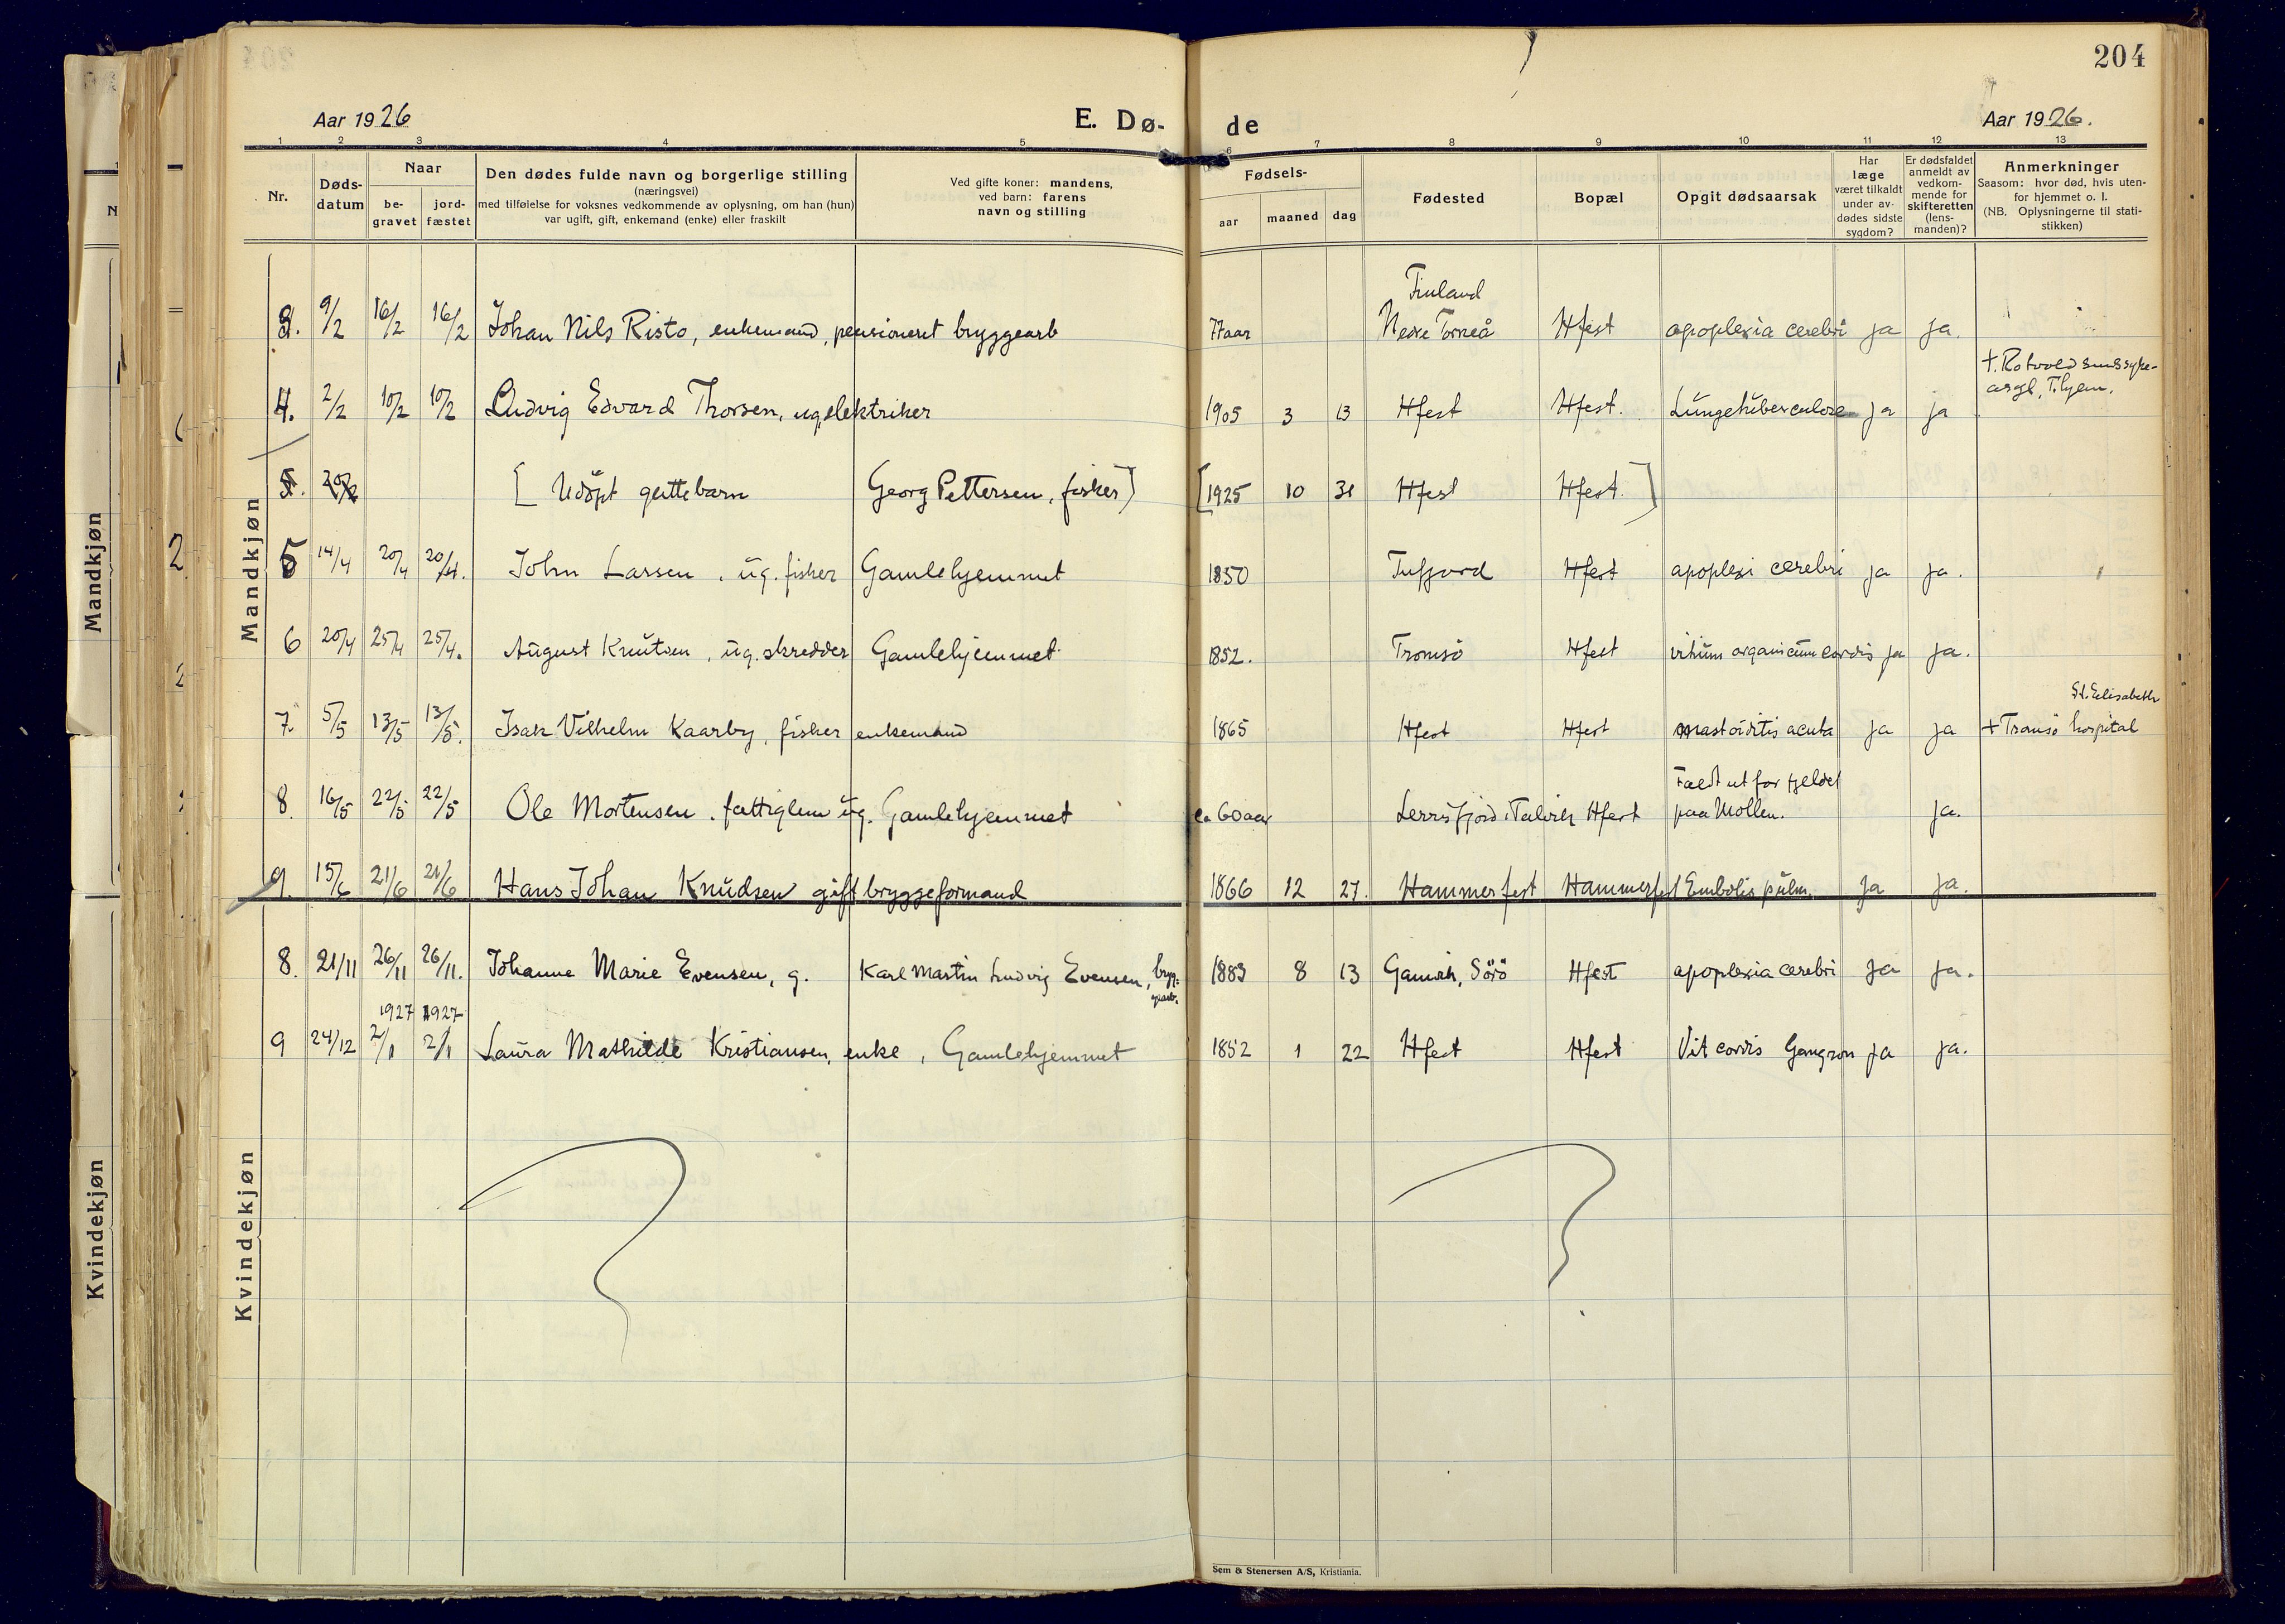 204
Aar 1926
E. Dø-
de
Aar 1926.
1 2 3 4 5 6 7 8 9 10 11 12 13
Nr.
Døds-
datum
Naar
be-
gravet
jord-
fæstet
Den dødes fulde navn og borgerlige stilling
(næringsvei)
med tilføielse for voksnes vedkommende av oplysning, om han (hun)
var ugift, gift, enkemand (enke) eller fraskilt
Ved gifte koner: mandens,
ved barn: farens
navn og stilling
Fødsels-
aar
maaned
dag
Fødested
Bopæl
Opgit dødsaarsak
Har
læge
været tilkaldt
under av-
dødes sidste
sygdom?
Er dødsfaldet
anmeldt av
vedkom-
mende for
skifteretten
(lens-
manden)?
Anmerkninger
Saasom: hvor død, hvis uten-
for hjemmet o. l.
(NB. Oplysningerne til stati-
stikken)
Mandkjøn
Mandkjøn
Finland
3. 9/2 16/2 16/2 Johan Nils Risto, enkemand, pensioneret bryggearb 77aar Nedre Torneå Hfest apoplexia cerebri ja ja.
+. Rotvold sinssyke-
asyl, T.hjem.
4. 2/2 10/2 10/2 Ludvig Edvard Thorsen, ug, elektriker 1905 3 13 Hfest Hfest. Lungetüberculose ja ja
5. 20/2 [Udöpt guttebarn Georg Pettersen, fisker] [1925 10 31 Hfest Hfest.]
5 14/4 20/4 20/4. John Larsen, ug. fisker Gamlehjemmet 1850 Tufjord Hfest apoplexi cerebri ja ja.
6 20/4 25/4 25/4. August Knutsen, ug. skredder Gamlehjemmet 1852. Tromsö Hfest vitium organicum cordis ja ja.
St. Elisabeth
7. 5/5 13/5 13/5. Isak Vilhelm Kaarby, fisker enkemand 1865 Hfest Hfest mastoiditis acuta ja ja + Tromsö hospital
Faldt ut for fjeldet
8. 16/5 22/5 22/5 Ole Mortensen, fattiglem ug. Gamlehjemmet ca 60 aar Lerrisfjord i Talvik Hfest paa Mollen. ja.
9. 15/6 21/6 21/6 Hans Johan Knüdsen gift bryggeformand 1866 12 27. Hammerfest Hammerfest Embolis pülm. ja ja.
8. 21/11 26/11 26/11. Johanne Marie Evensen, g. Karl Martin Ludvig Evensen, bryg-
gearb. 1883 8 13 Gamvik, Sörö Hfest apoplexia cerebri ja ja.
1927 1927
9 24/12 2/1 2/1 Laura Mathilde Kristiansen, enke, Gamlehjemmet 1852 1 22 Hfest Hfest Vit cordis Gangræn ja ja.
Kvindekjøn
Kvindekjøn
Sem & Stenersen A/S, Kristiania.